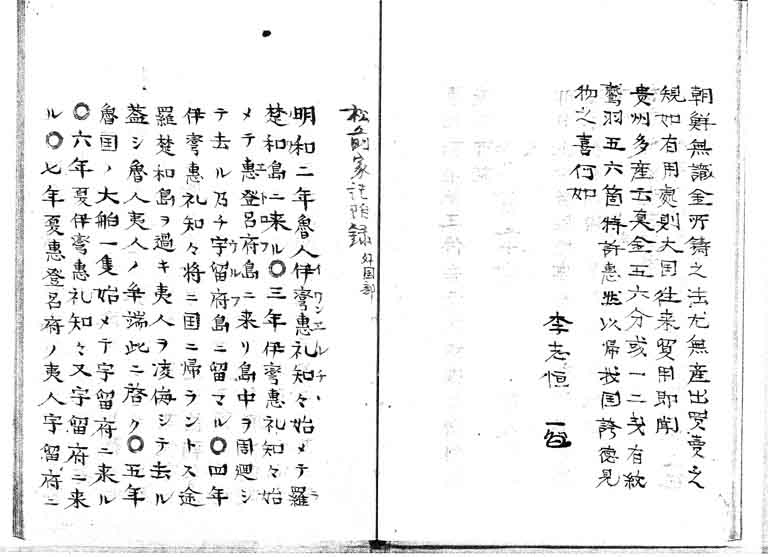 朝鮮無識金所鋳之法尤無産出買賣之
規如有用處則大国往来貿用耶聞
貴州多産云真金五六分或一二戔有紋
鷲羽五六箇特許惠此以帰我国誇德見
物之喜何如
李志恒
松前家記附録 外国部
明和二年魯人伊彎惠礼知々始メテ羅
楚和島ニ来ル〇三年伊彎惠礼知々始
メテ惠登呂府島ニ来リ島中ヲ周廻シ
テ去ル乃チ宇留府島ニ留マル〇四年
伊彎惠礼知々将ニ国ニ帰ラントス途
羅楚和島ヲ過キ夷人ヲ凌侮シテ去ル
蓋シ魯人夷人ノ争端此ニ啓ク〇五年
魯国ノ大舶一隻始メテ宇留府ニ来ル
〇六年夏伊彎惠礼知々又宇留府ニ来
ル〇七年夏惠登呂府ノ夷人宇留府ニ